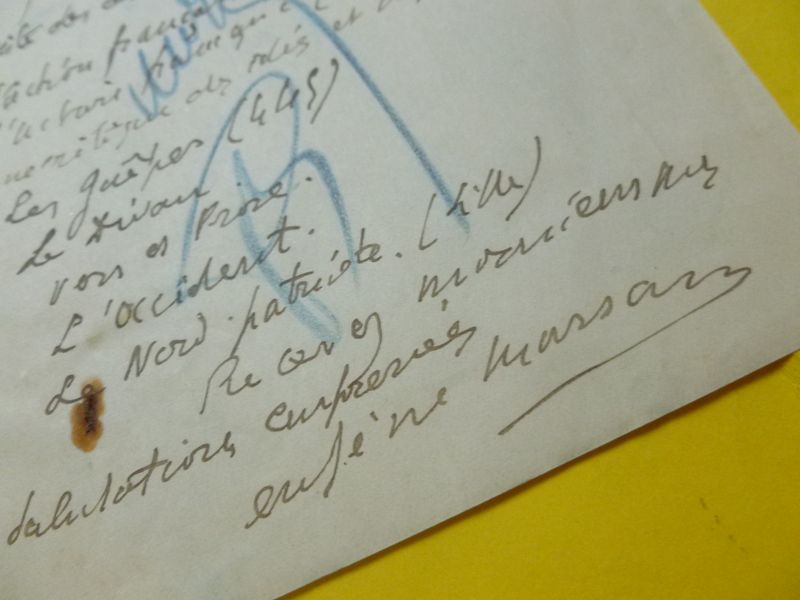 l'action française
des idées et
Les Guêpes (449)
Le Divan
Vers et Prose.
L'Occident.
Le Nord patriote. (Lille)
Recevez monsieur mes
salutations empressées
eugène marsan